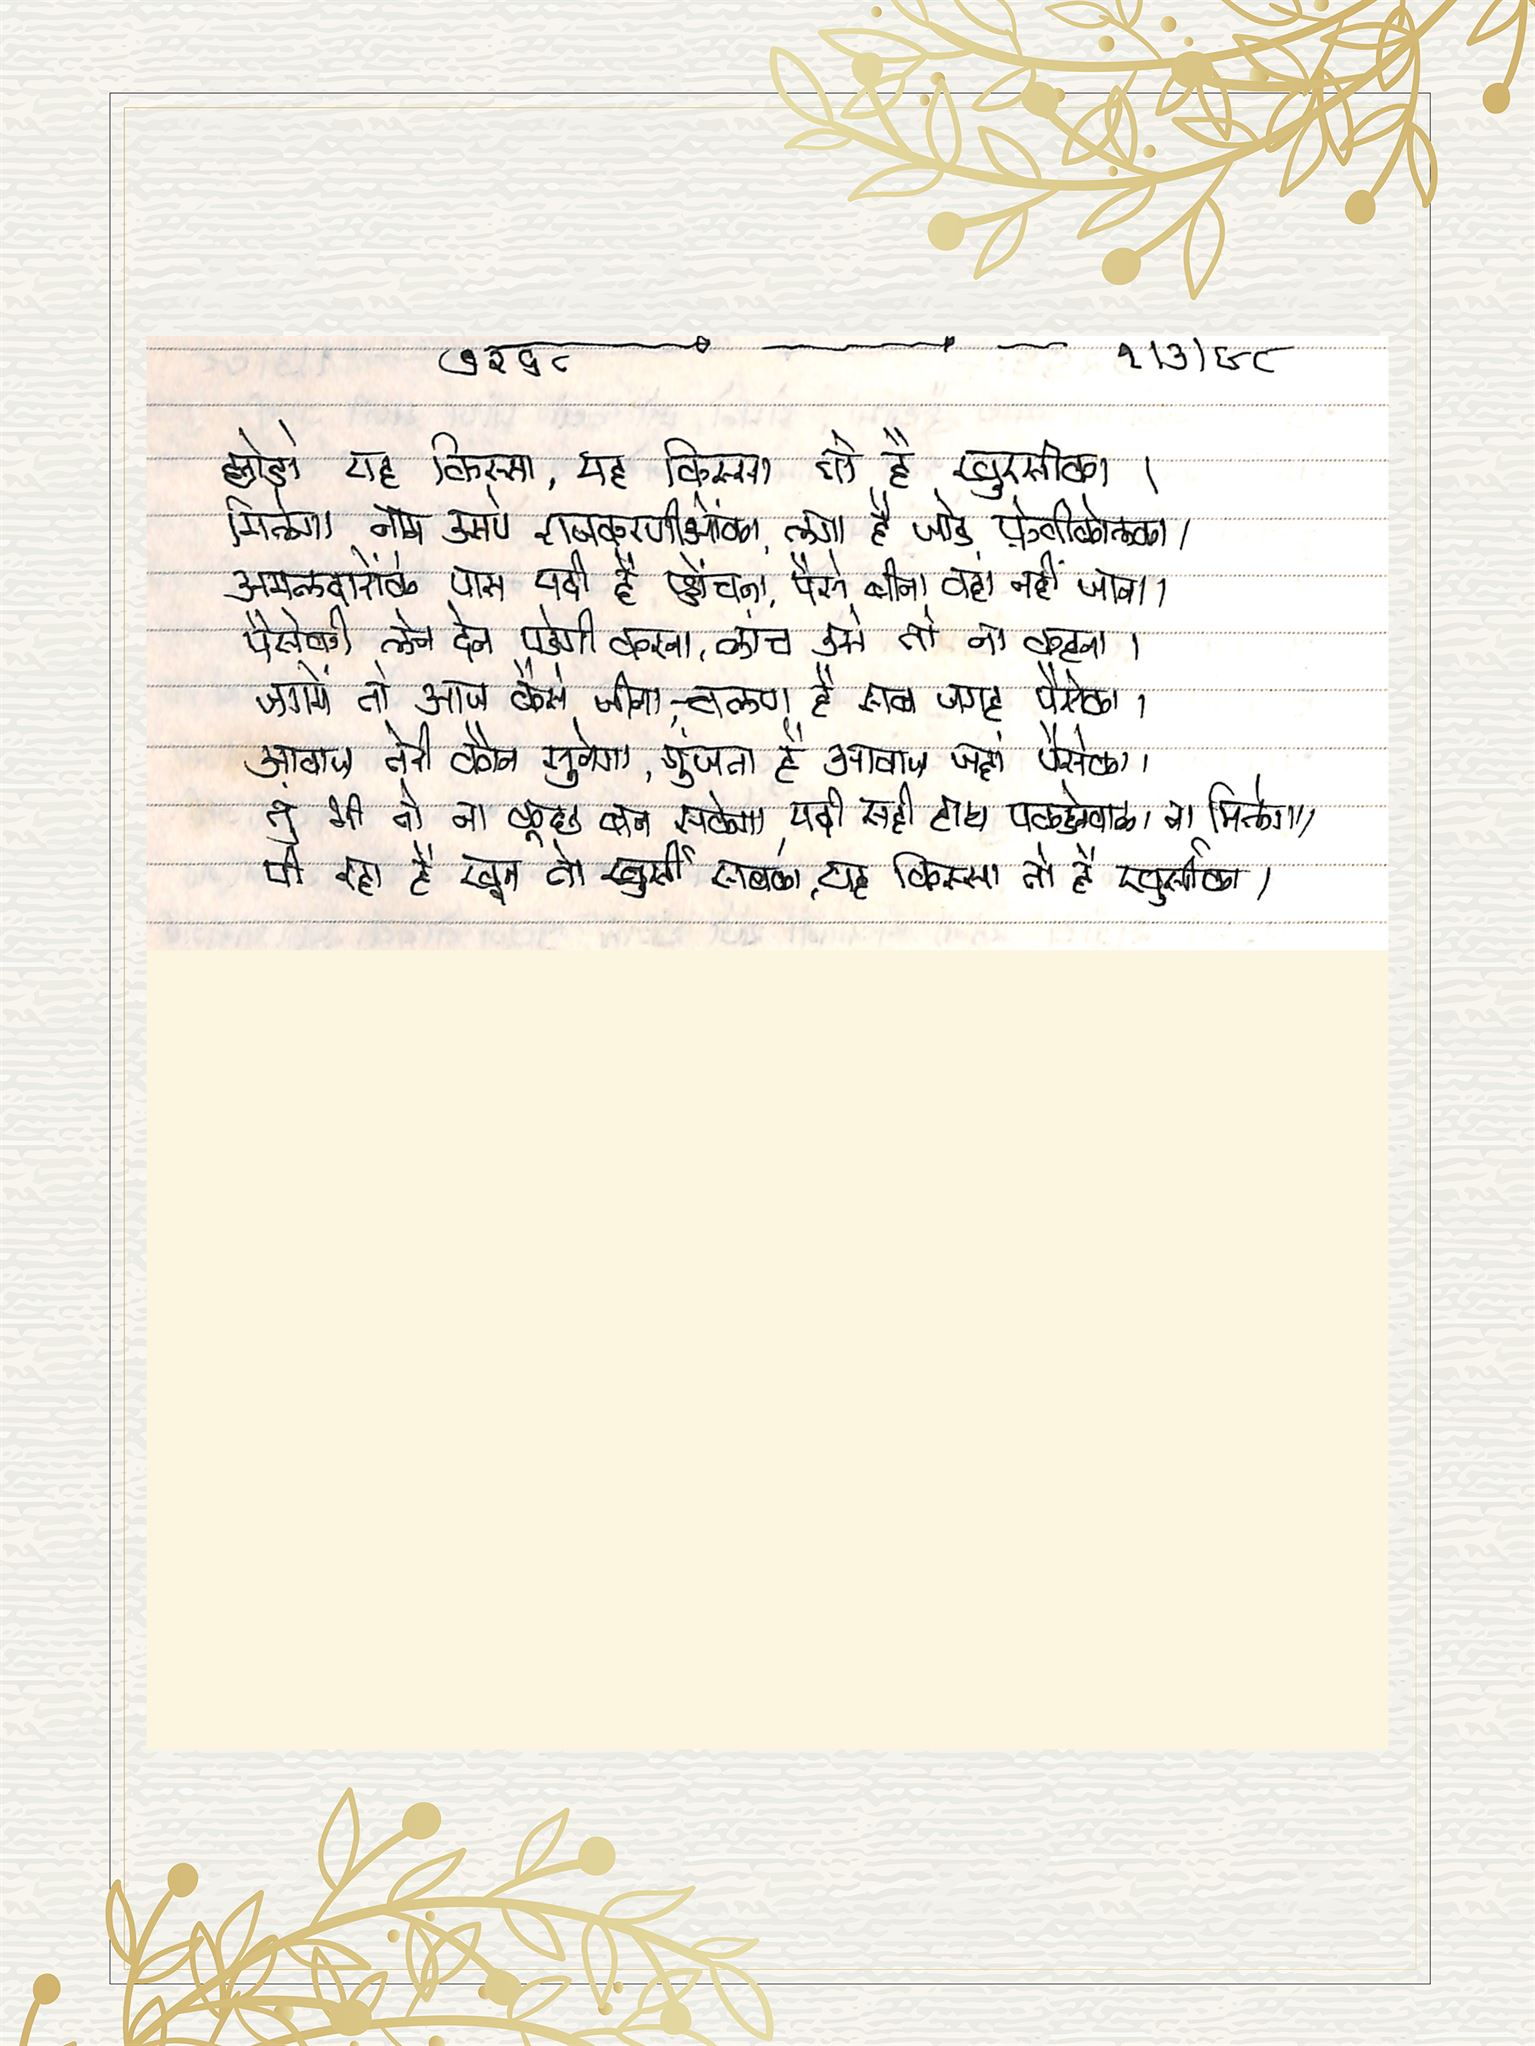 ७२६८ १।३।६८
छोडो यह किस्सा, यह किस्सा तो है खुरसीका ।
मिलेगा नाम उसपे राजकरणीओंका, लगा है जोड फ़ेवीकोलका ।
अमलदारोंके पास यदी है पहोंचना, पैसे बीना वहां नहीं जाना ।
पैसेकी लेन देन पडेगी करना, लांच उसे तो ना कहना ।
जगमें तो आज कैसे जीना, चलण है सब जगह पैसेका ।
आवाज तेरी कौन सुनेगा, गुंजता है आवाज जहां पैसेका ।
तुं भी तो ना कूछ बन सकेगा, यदी सही हाथ पकडनेवाला ना मिलेगा ।
पी रहा है खून तो खुर्सी सबका, यह किस्सा तो है खुर्सीका ।